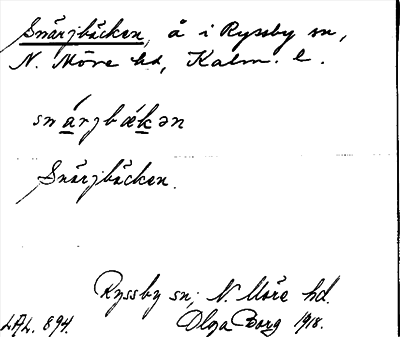 Snärjbäcken, å i Ryssby sn,
N. Möre hd, Kalm. l.
snárjbǽkən
Snärjbäcken.
Ryssby sn; N. Möre hd.
LAL. 894. Olga Borg 1918.